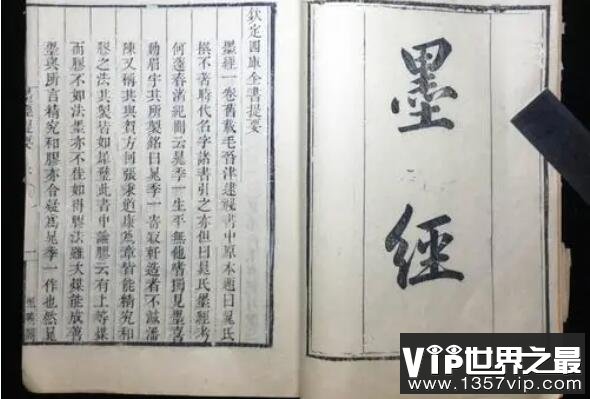 墨經
欽定四庫全書提要
墨經一卷舊載毛晉津逮祕書中原本題曰晁氏
撰不著時代名字諸書引之亦但曰晁氏墨經考
何薳春渚紀聞云晁季一生平無他嗜獨見墨喜
動眉宇其所製銘曰晁季一寄寂軒造者不減潘
陳又稱其與賀方回張秉道康為章皆能精究和
膠之法其製皆如犀璧此書中論膠云有上等煤
而膠不如法墨亦不佳如得膠法雖次煤能成善
墨與所言精究和膠亦合疑為晁季一作也然晁
墨經提要
VIP世界之最
www.1357vip.com